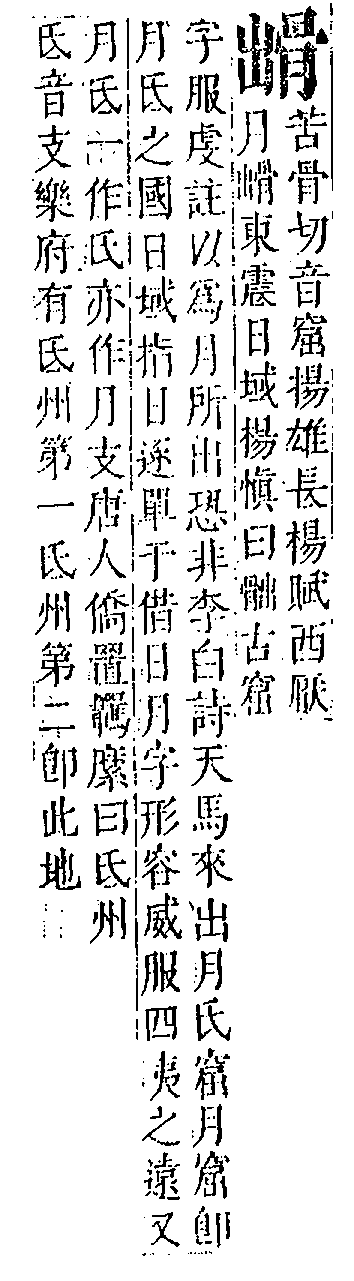 苦骨切音窟揚雄長楊賦西厭
月東震日域楊慎曰古窟
字服虔註以爲月所出恐非李白詩天馬來出月氏窟月窟卽
月氐之國日域指日逐單于借日月字形容威服四夷之遠又
月氐一作氏亦作月支唐人僑置羈縻曰氐州
氐音支樂府有氐州第一氐州第二卽此地